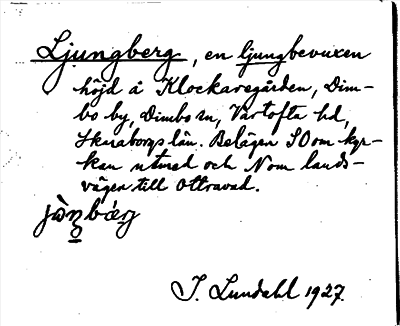 Ljungberg, en ljungbevuxen
höjd å Klockaregården, Dim-
bo by, Dimbo sn, Vartofta hd,
Skaraborgs län. Belägen SO om kyr-
kan utmed och N om lands-
vägen till Ottravad.
jàn̥bærj
J. Lundahl 1927.